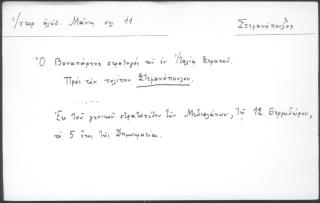 Ἱστορ. ἀλύδ. Μάνη σελ 11
Στεφανόπουλος
Ὁ Βοναπάρτης στρατηγός τοῦ ἐν Ἰταλίᾳ στρατοῦ.
Πρός τόν πολίτην Στεφανόπουλον.
Ἐκ τοῦ γενικοῦ στρατοπέδου τῶν Μεδιολάνων, τῇ 12 Θερμιδώρου,
τό 5 ἔτος τῆς Δημοκρατίας.